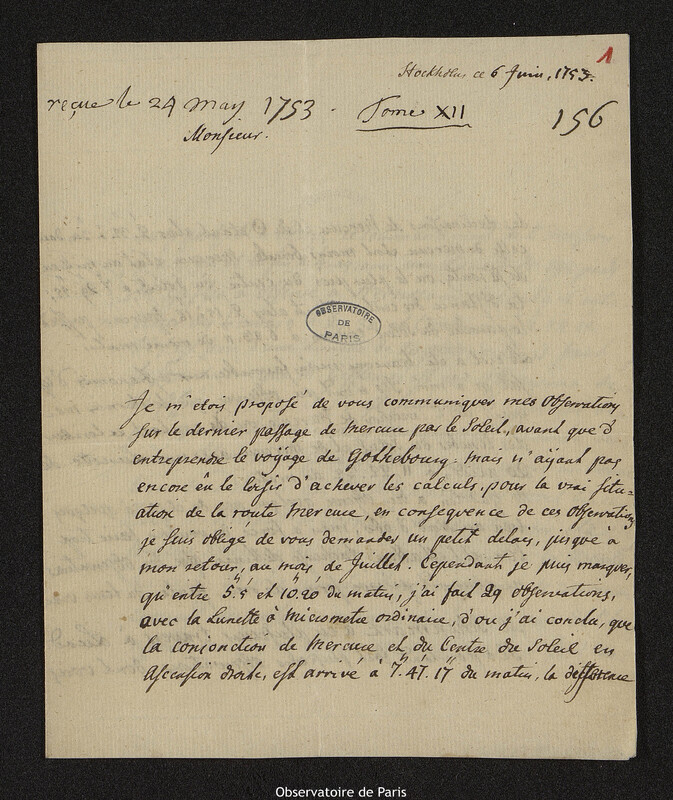 1
Stockholm ce 6 Juin. 1753.
reçue le 24 may 1753. Tome XII
156
Monsieur.
OBSERVATOIRE
DE
PARIS
Je m'etois proposé de vous communiquer mes Observations
sur le dernier passage de Mercure par le Soleil, avant que d'
entreprendre le voÿage de Gothebourg. mais n'aÿant pas
encore êu le loisir d'achever les calculs, pour la vrai situ-
ation de la route Mercure, en consequence de ces Observations,
je suis obligé de vous demander un petit delais, jusque à
mon retour, au mois de Juillet. Cependant je puis marquer,
qu'entre 5.5' et 10.20' du matin, j'ai fait 29 observations,
avec la Lunette à Micrometre ordinaire, d'ou j'ai conclu, que
la conjonction de Mercure et du Centre du Soleil en
Ascension droite, est arrivé à 7.41'.17" du matin, la difference
Observatoire de Paris